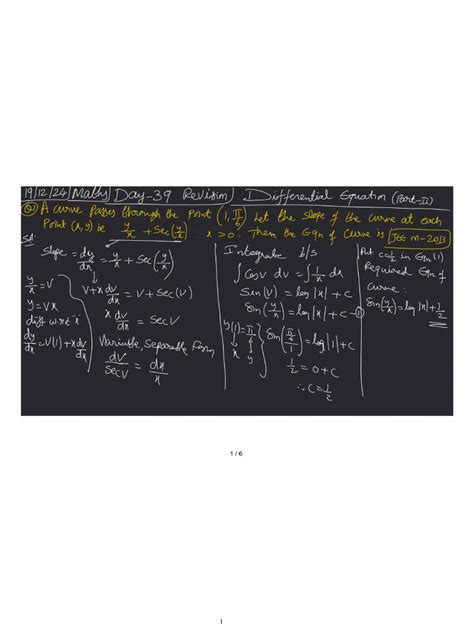 19/12/24/Maths/Day-39 Revision/ Differential Equation (Part-II)
Q1) A curve Passes through the Point (1, π/6) Let the Slope of the curve at each
Point (x,y) be y/x + Sec(y/x) x > 0. Then the Eqn of Curve is JEE M-2013
Slope = dy/dx = y/x + Sec(y/x)
y/x = V
y = Vx
diff w.r.t 'x'
dy/dx = V(1) + x dv/dx
V + x dv/dx = V + Sec(V)
x dv/dx = SecV
Variable, Separable Form
dV/SecV = dx/x
Integrate b/s
∫CosV dv = ∫1/x dx
Sin(V) = log|x| + C
Sin(y/x) = log|x| + C -(1)
y(1) = π/6
x y
Sin(π/6/1) = log|1| + C
1/2 = 0 + C
∴ C = 1/2
Put C=1/2 in Eqn(1)
Required Eqn of
Curve:
Sin(y/x) = log|x| + 1/2
1 / 6
1